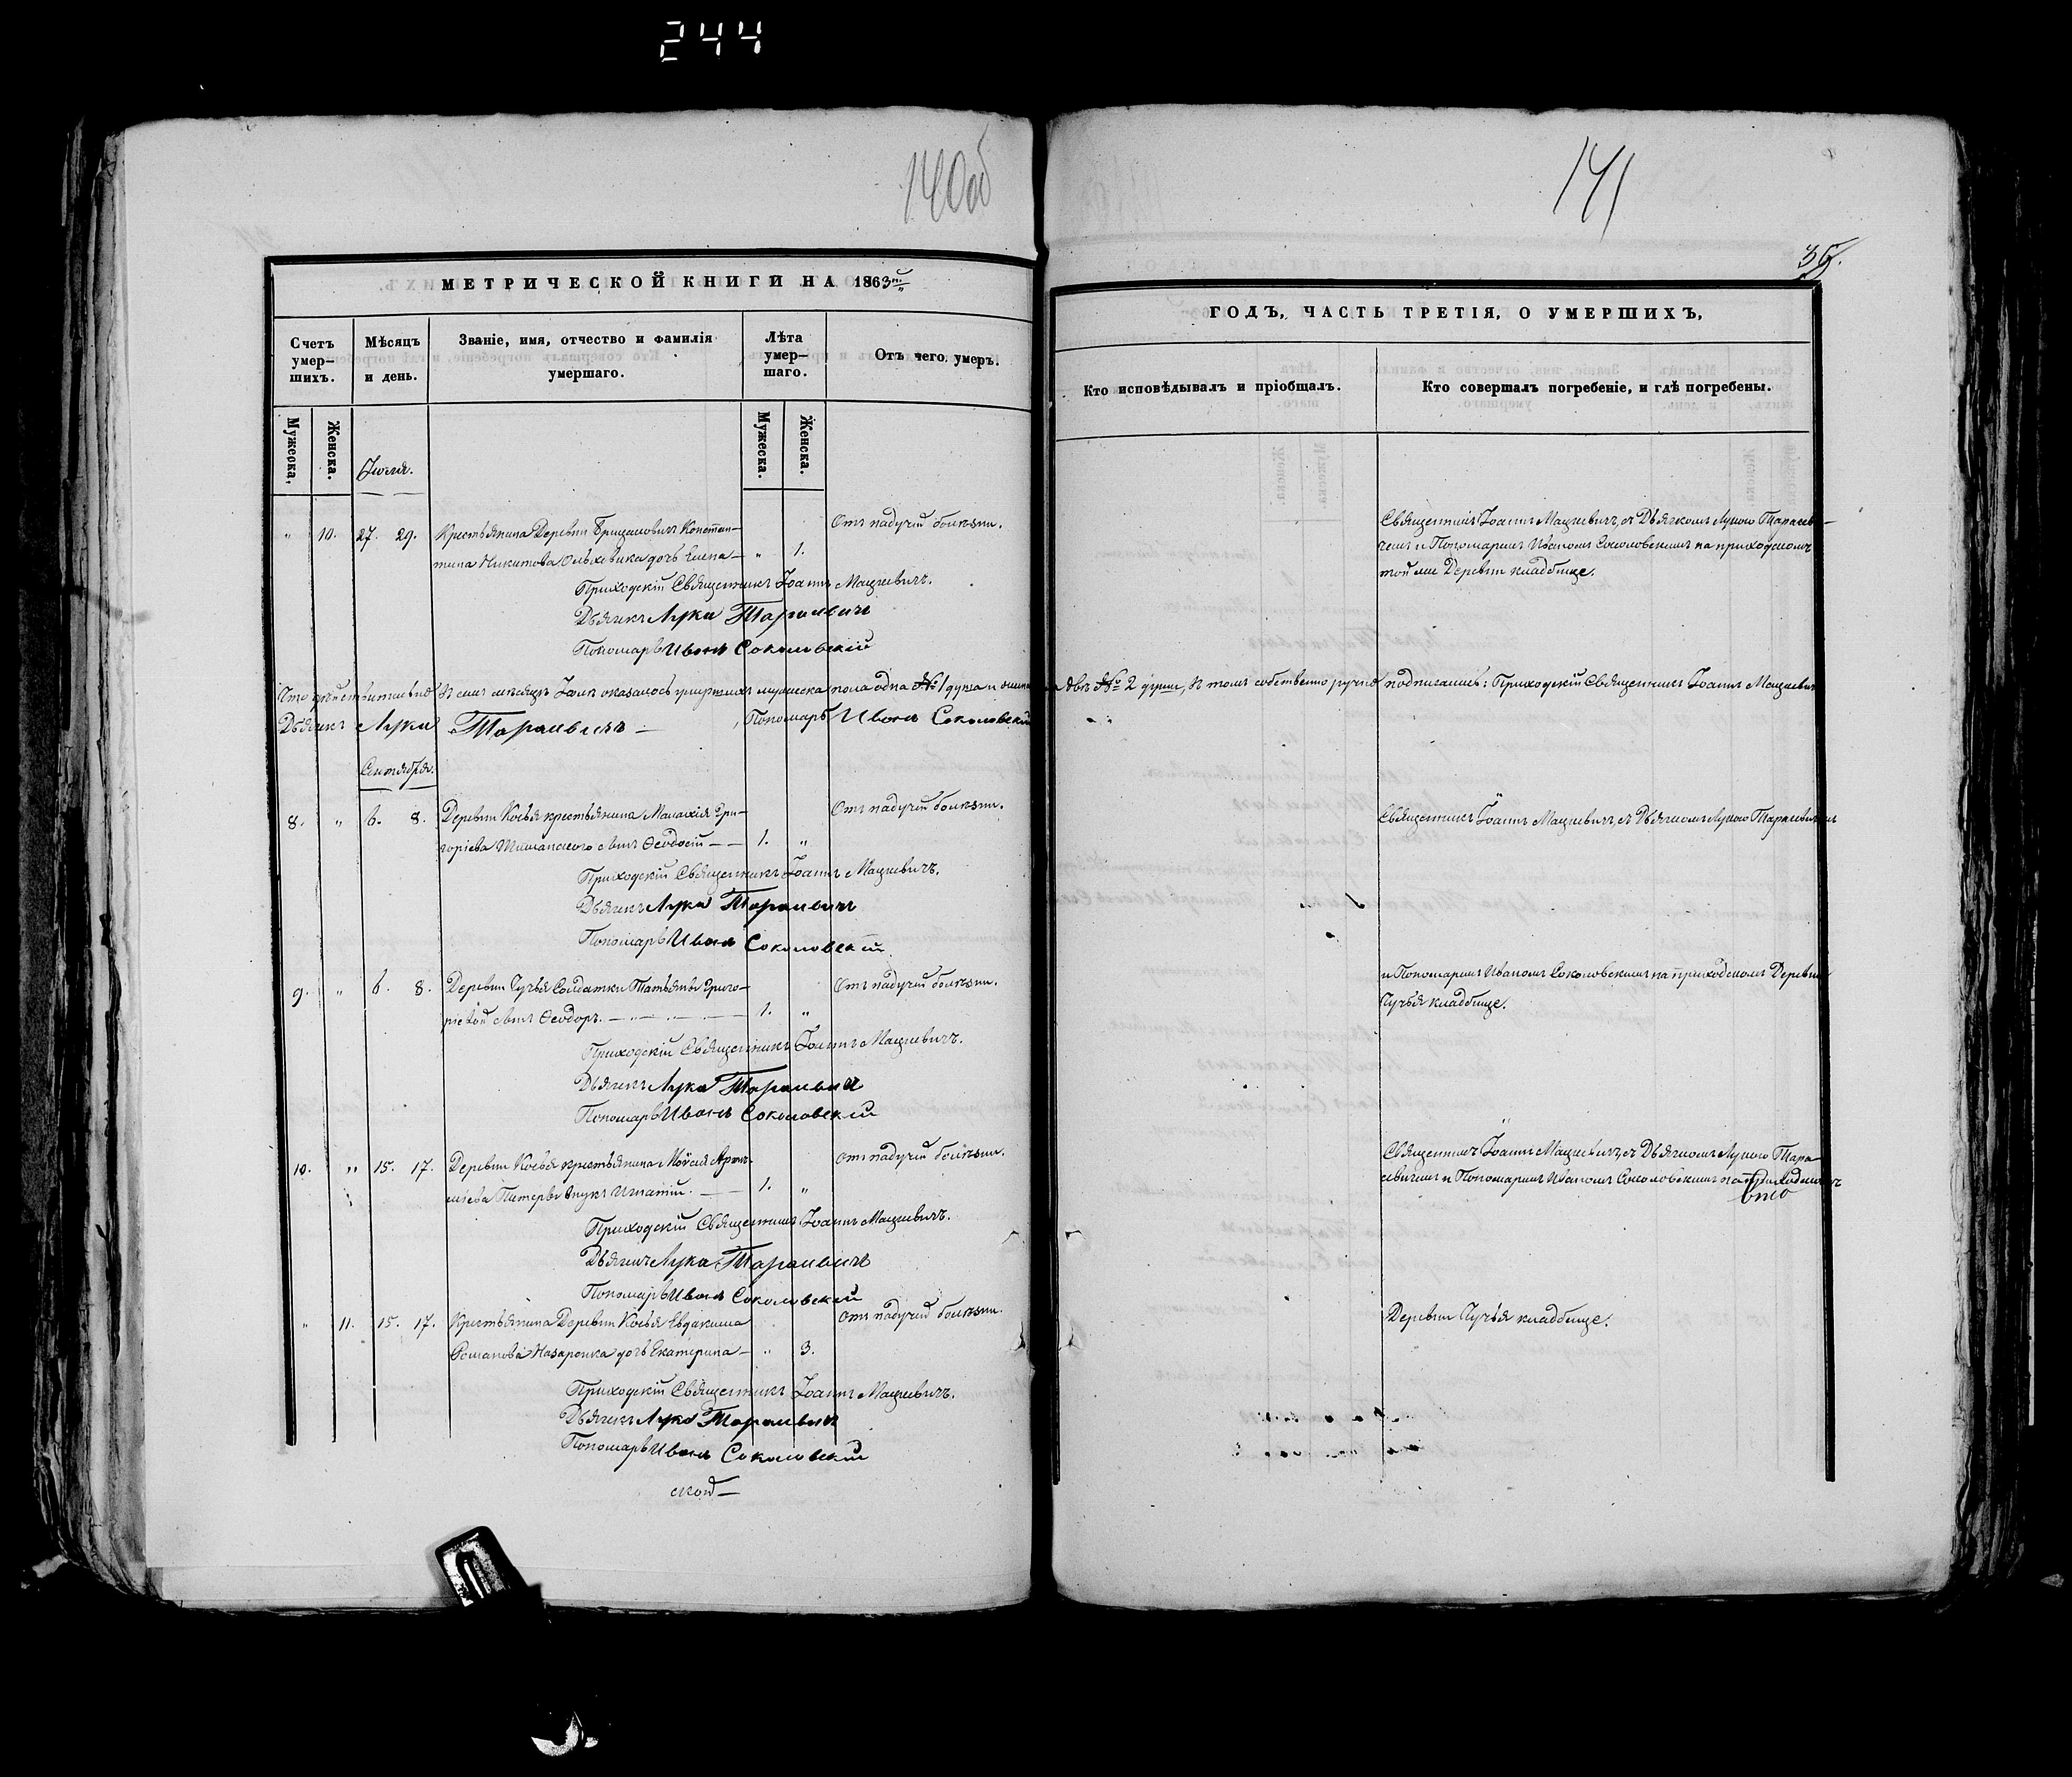 244
140об
141
35.
МЕТРИЧЕСКОЙ КНИГИ НА 1863й
ГОДЪ, ЧАСТЬ ТРЕТІЯ, О УМЕРШИХЪ,
Счетъ умер-шихъ.
Мѣсяцъ и день.
Званіе, имя, отчество и фамилія умершаго.
Лѣта умер-шаго.
Отъ чего умеръ.
Кто исповѣдывалъ и пріобщалъ.
Кто совершалъ погребеніе, и гдѣ погребены.
Мужеска.
Женска.
Мужеска.
Женска.
Іюля.
" 10. 27. 29. Крестьянина Деревни Константина Никитова дочь Елена — " 1. Отъ падучей болѣзни.
Священникъ Іоаннъ Мацкевичъ, съ Дьячкомъ Лукою Тарасевичемъ и Пономаремъ Иваномъ Соколовскимъ на приходскомъ
той же Деревни кладбище.
Приходскій Священникъ Іоаннъ Мацкевичъ.
Дьячекъ Лука Тарасевичъ
Пономарь Иванъ Соколовскій
Что дѣйствительно въ семъ мѣсяцѣ Іюлѣ оказалось умершихъ мужеска пола одна № 1 душа и женска двѣ № 2 души, въ томъ собственноручно подписались: Приходскій Священникъ Іоаннъ Мацкевичъ
Дьячекъ Лука Тарасевичъ — Пономарь Иванъ Соколовскій
Сентября.
8. " 6. 8. Деревни Косья крестьянина Малахія Гри-
горіева сынъ Ѳеодосій — — 1. " Отъ падучей болѣзни.
Священникъ Іоаннъ Мацкевичъ, съ Дьячкомъ Лукою Тарасевичемъ
Приходскій Священникъ Іоаннъ Мацкевичъ.
Дьячекъ Лука Тарасевичъ
Пономарь Иванъ Соколовскій
9. " 6. 8. Деревни Пучья Солдатки Татьяны Григо-
ріевой сынъ Ѳеодоръ. — 1. " Отъ падучей болѣзни.
и Пономаремъ Иваномъ Соколовскимъ на приходскомъ Деревни
Пучья кладбище.
Приходскій Священникъ Іоаннъ Мацкевичъ.
Дьячекъ Лука Тарасевичъ
Пономарь Иванъ Соколовскій
10. " 15. 17. Деревни Косья крестьянина Моѵсія
внукъ Игнатій. — 1. " Отъ падучей болѣзни.
Священникъ Іоаннъ Мацкевичъ, съ Дьячкомъ Лукою Тара-
севичемъ и Пономаремъ Иваномъ Соколовскимъ на приходскомъ
Приходскій Священникъ Іоаннъ Мацкевичъ.
Дьячекъ Лука Тарасевичъ
Пономарь Иванъ Соколовскій
" 11. 15. 17. Крестьянина Деревни Косья Евдакима
Романова Назаренка дочь Екатерина — " 3. Отъ падучей болѣзни.
Деревни Пучья кладбище.
Приходскій Священникъ Іоаннъ Мацкевичъ.
Дьячекъ Лука Тарасевичъ
Пономарь Иванъ Соколовскій